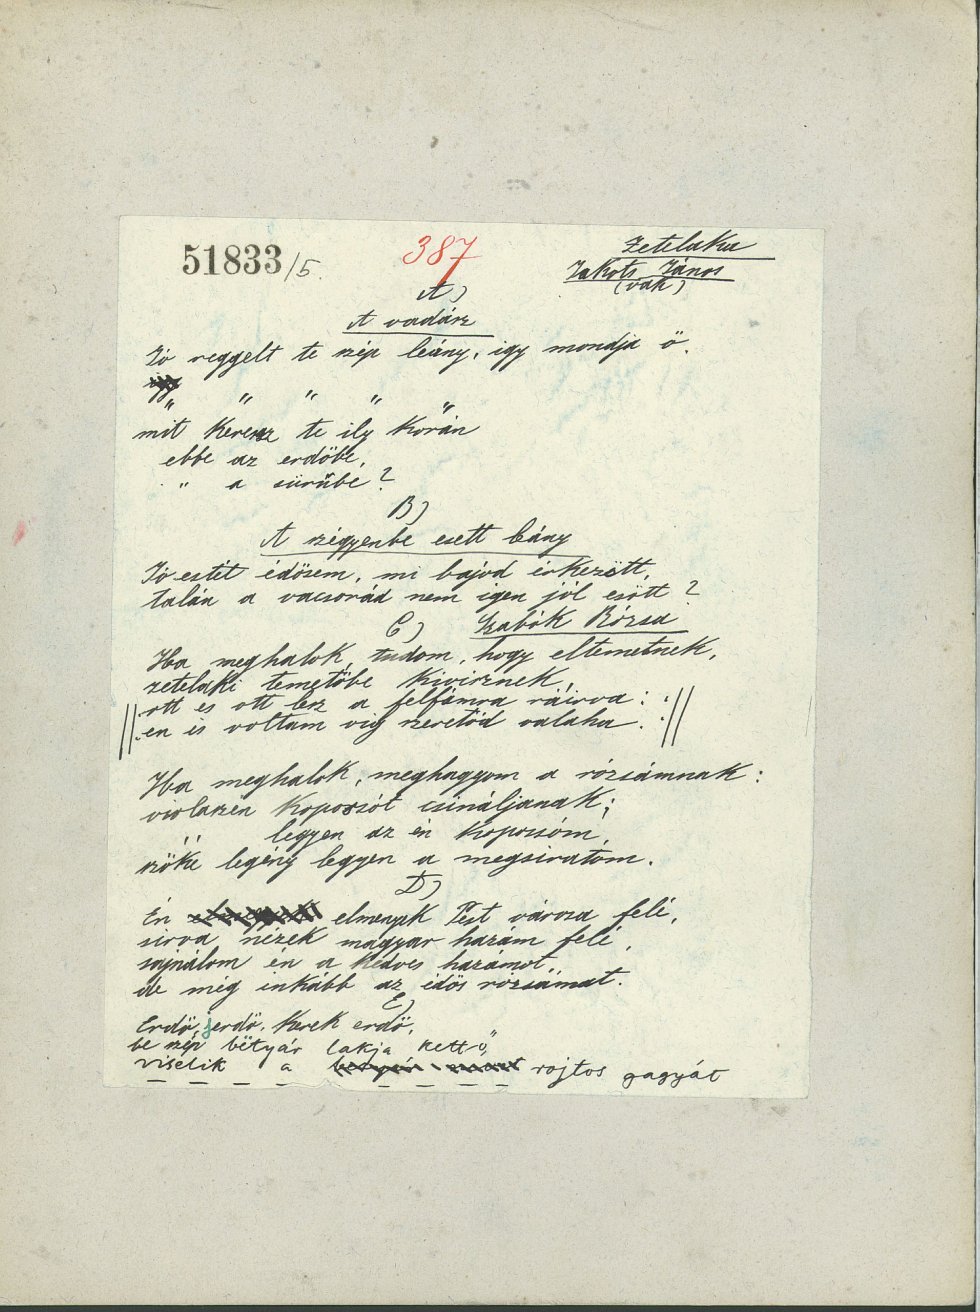 51833/5.
387
Zetelaka
Jakots János
(vak)
A)
A vadász
Jó reggelt te szép leány, igy mondja ő.
igy
" " " " "
mit keresz te ily korán
ebbe az erdőbe,
" a sürűbe?
B)
A szégyenbe esett leány
Jó estét édösem, mi bajod érkezött,
talán a vacsorád nem igen jól esött?
C) Szabók Rózsa
Ha meghalok, tudom, hogy eltemetnek,
zetelaki temetőbe kivisznek,
ott és ott lesz a felfámra ráirva:
én is voltam víg szeretőd valaha.
Ha meghalok, meghagyom a rózsámnak:
violaszén koporsót csináljanak;
" " legyen az én koporsóm,
szőke legény legyen a megsiratóm.
D)
Én elmenyek Pest városa felé,
sirva nézek magyar hazám felé,
sajnálom én a kedves hazámot,
de még inkább az édös rózsámat.
E)
Erdő, jerdő, kerek erdő,
be szép bëtyár lakja kettő,
viselik a rojtos gagyát